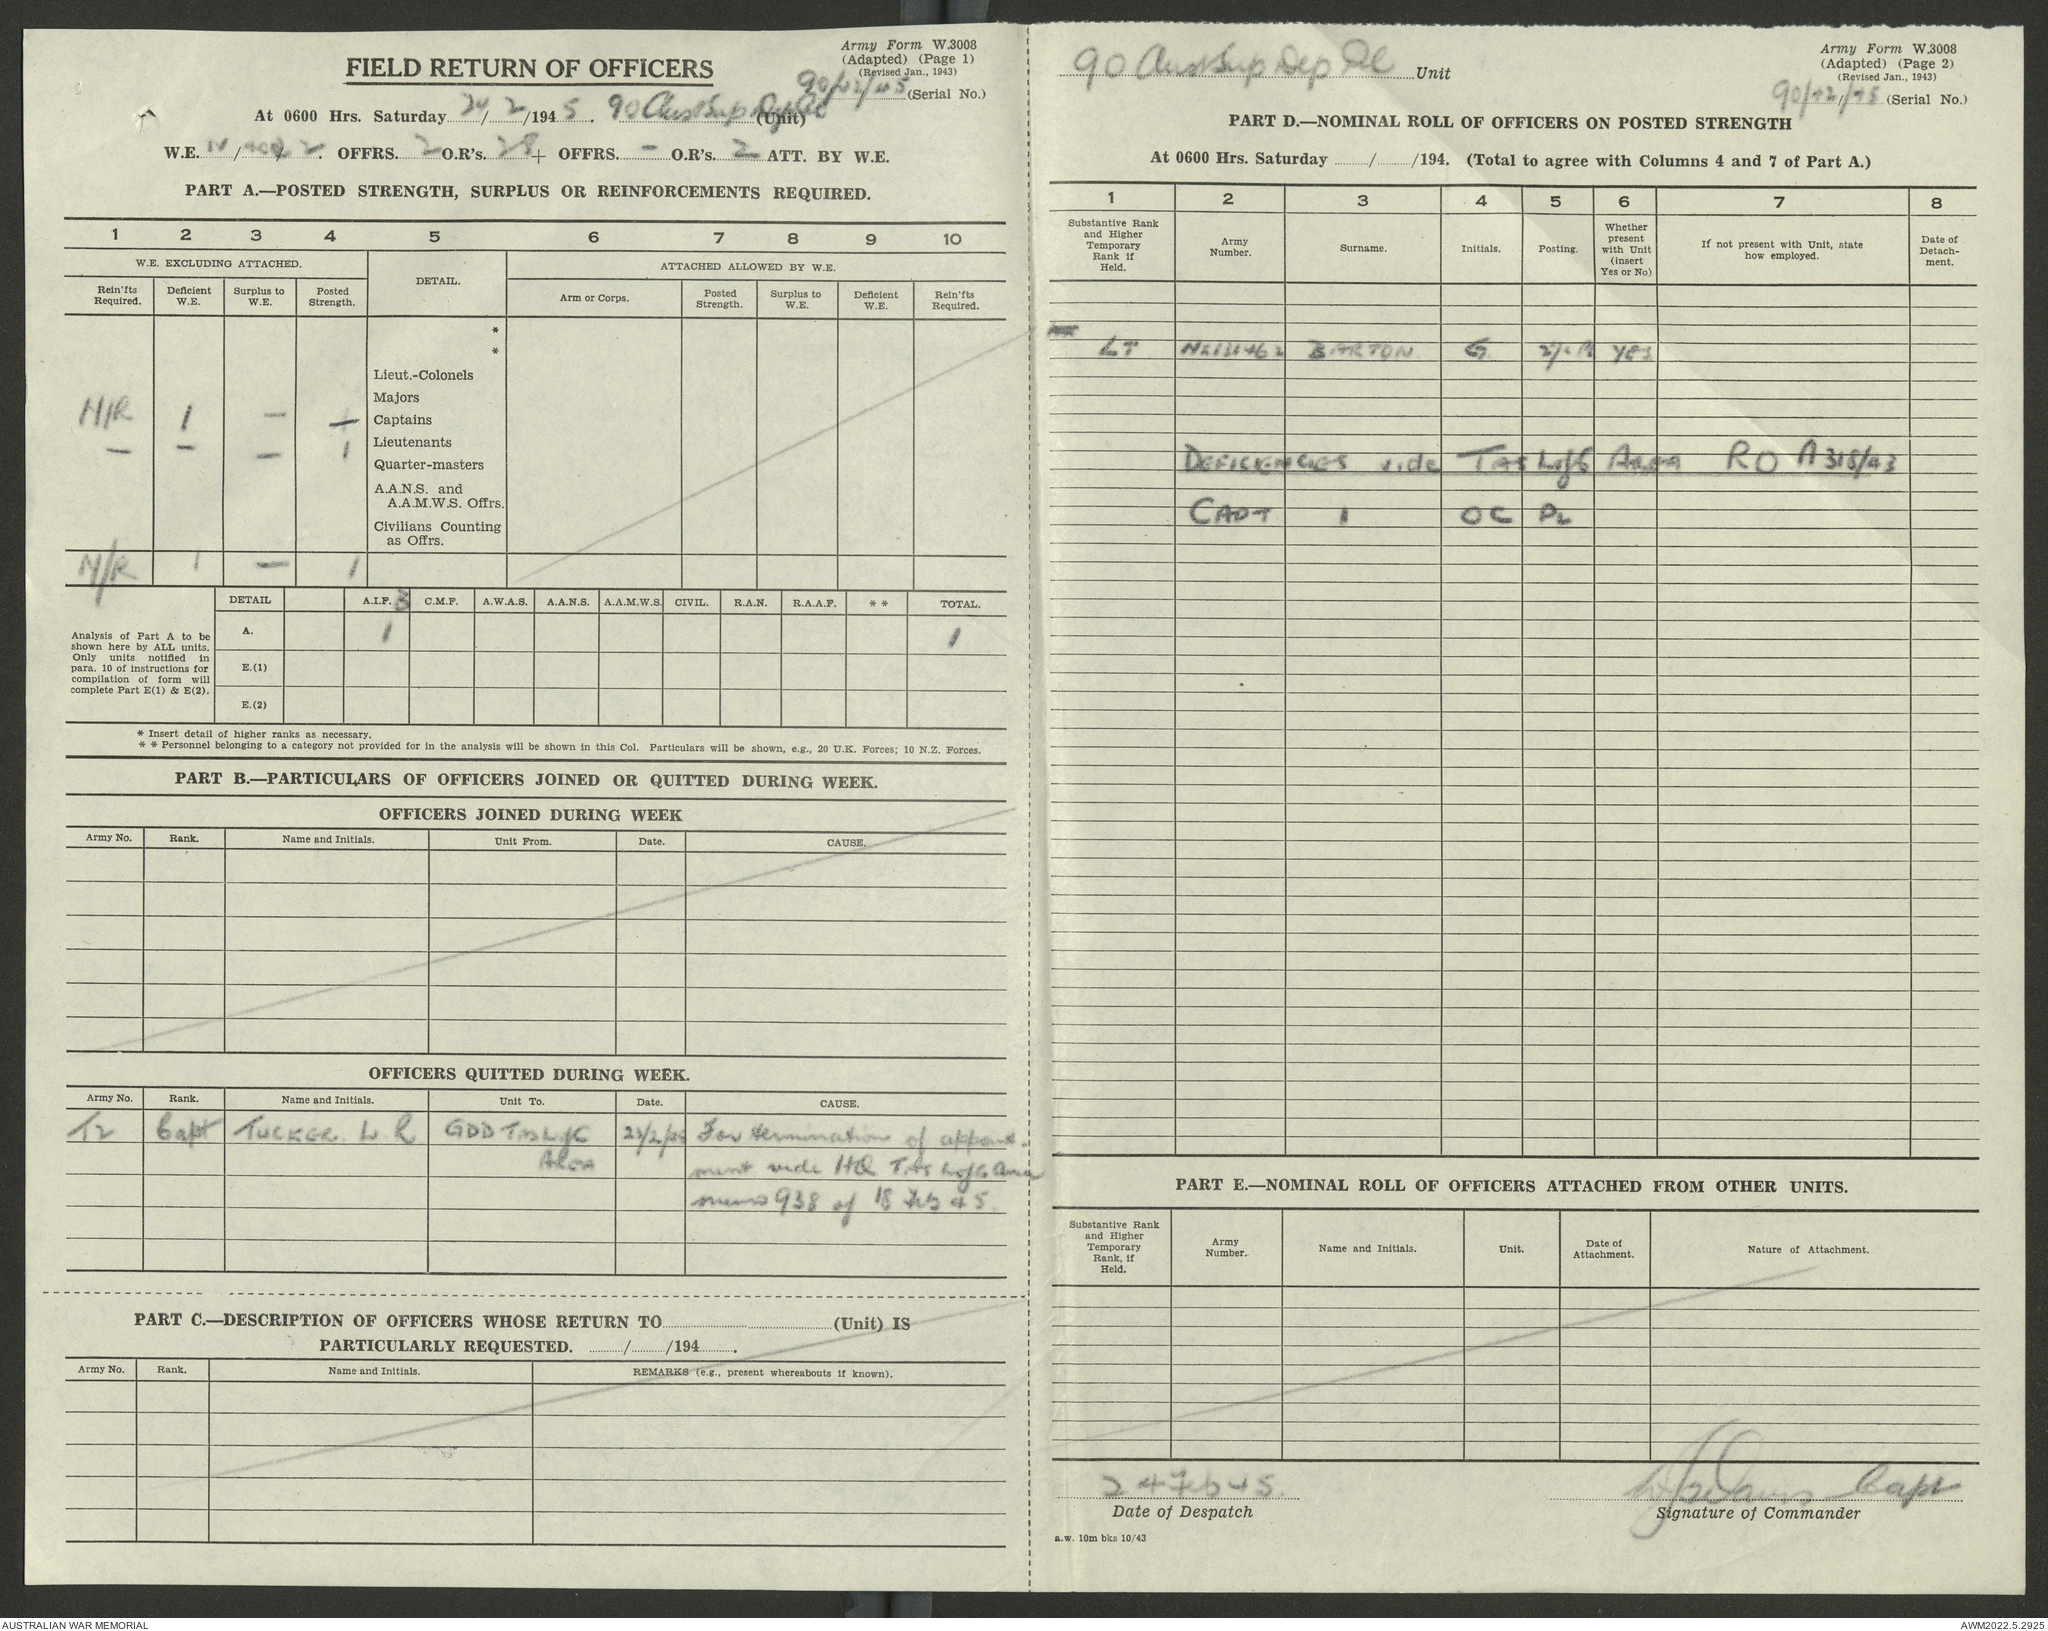 Army Form W.3008
(Adapted) (Page 1)
(Revised Jan., 1943)
FIELD RETURN OF OFFICERS
90/42/45 (Serial No.)
At 0600 Hrs. Saturday 24/2/1945. 90 Aust Sup Dep Pl (Unit)
W.E. 2. OFFRS. 2 O.R's. 28 + OFFRS. - O.R's. 2 ATT. BY W.E.
PART A.—POSTED STRENGTH, SURPLUS OR REINFORCEMENTS REQUIRED.
1 2 3 4 5 6 7 8 9 10
W.E. EXCLUDING ATTACHED. DETAIL. ATTACHED ALLOWED BY W.E.
Rein'fts Required. Deficient W.E. Surplus to W.E. Posted Strength. Arm or Corps. Posted Strength. Surplus to W.E. Deficient W.E. Rein'fts Required.
*
*
Lieut.-Colonels
Majors
N/R 1 — — Captains
— — — 1 Lieutenants
Quarter-masters
A.A.N.S. and
A.A.M.W.S. Offrs.
Civilians Counting
as Offrs.
N/R 1 — 1
DETAIL A.I.F. C.M.F. A.W.A.S. A.A.N.S. A.A.M.W.S. CIVIL. R.A.N. R.A.A.F. * * TOTAL.
Analysis of Part A to be
shown here by ALL units.
Only units notified in
para. 10 of instructions for
compilation of form will
complete Part E(1) & E(2).
A. 1 1
E.(1)
E.(2)
* Insert detail of higher ranks as necessary.
* * Personnel belonging to a category not provided for in the analysis will be shown in this Col. Particulars will be shown, e.g., 20 U.K. Forces; 10 N.Z. Forces.
PART B.—PARTICULARS OF OFFICERS JOINED OR QUITTED DURING WEEK.
OFFICERS JOINED DURING WEEK
Army No. Rank. Name and Initials. Unit From. Date. CAUSE.
OFFICERS QUITTED DURING WEEK.
Army No. Rank. Name and Initials. Unit To. Date. CAUSE.
T2 Capt TUCKER L R GDD TAS L of C 23/2/45 For termination of appoint-
AREA ment vide HQ TAS L of C Area
memo 938 of 18 Feb 45.
PART C.—DESCRIPTION OF OFFICERS WHOSE RETURN TO (Unit) IS
PARTICULARLY REQUESTED. / /194 .
Army No. Rank. Name and Initials. REMARKS (e.g., present whereabouts if known).
90 Aust Sup Dep Pl Unit
Army Form W.3008
(Adapted) (Page 2)
(Revised Jan., 1943)
90/42/45 (Serial No.)
PART D.—NOMINAL ROLL OF OFFICERS ON POSTED STRENGTH
At 0600 Hrs. Saturday / /194. (Total to agree with Columns 4 and 7 of Part A.)
1 2 3 4 5 6 7 8
Substantive Rank and Higher Temporary Rank if Held. Army Number. Surname. Initials. Posting. Whether present with Unit (insert Yes or No) If not present with Unit, state how employed. Date of Detach-ment.
LT NX131462 BARTON G YES
DEFICIENCIES vide TAS L of C AREA RO A318/43
CAPT 1 OC PL
PART E.—NOMINAL ROLL OF OFFICERS ATTACHED FROM OTHER UNITS.
Substantive Rank and Higher Temporary Rank, if Held. Army Number. Name and Initials. Unit. Date of Attachment. Nature of Attachment.
24 Feb 45. Capt
Date of Despatch Signature of Commander
a.w. 10m bks 10/43
AUSTRALIAN WAR MEMORIAL AWM2022.5.2925